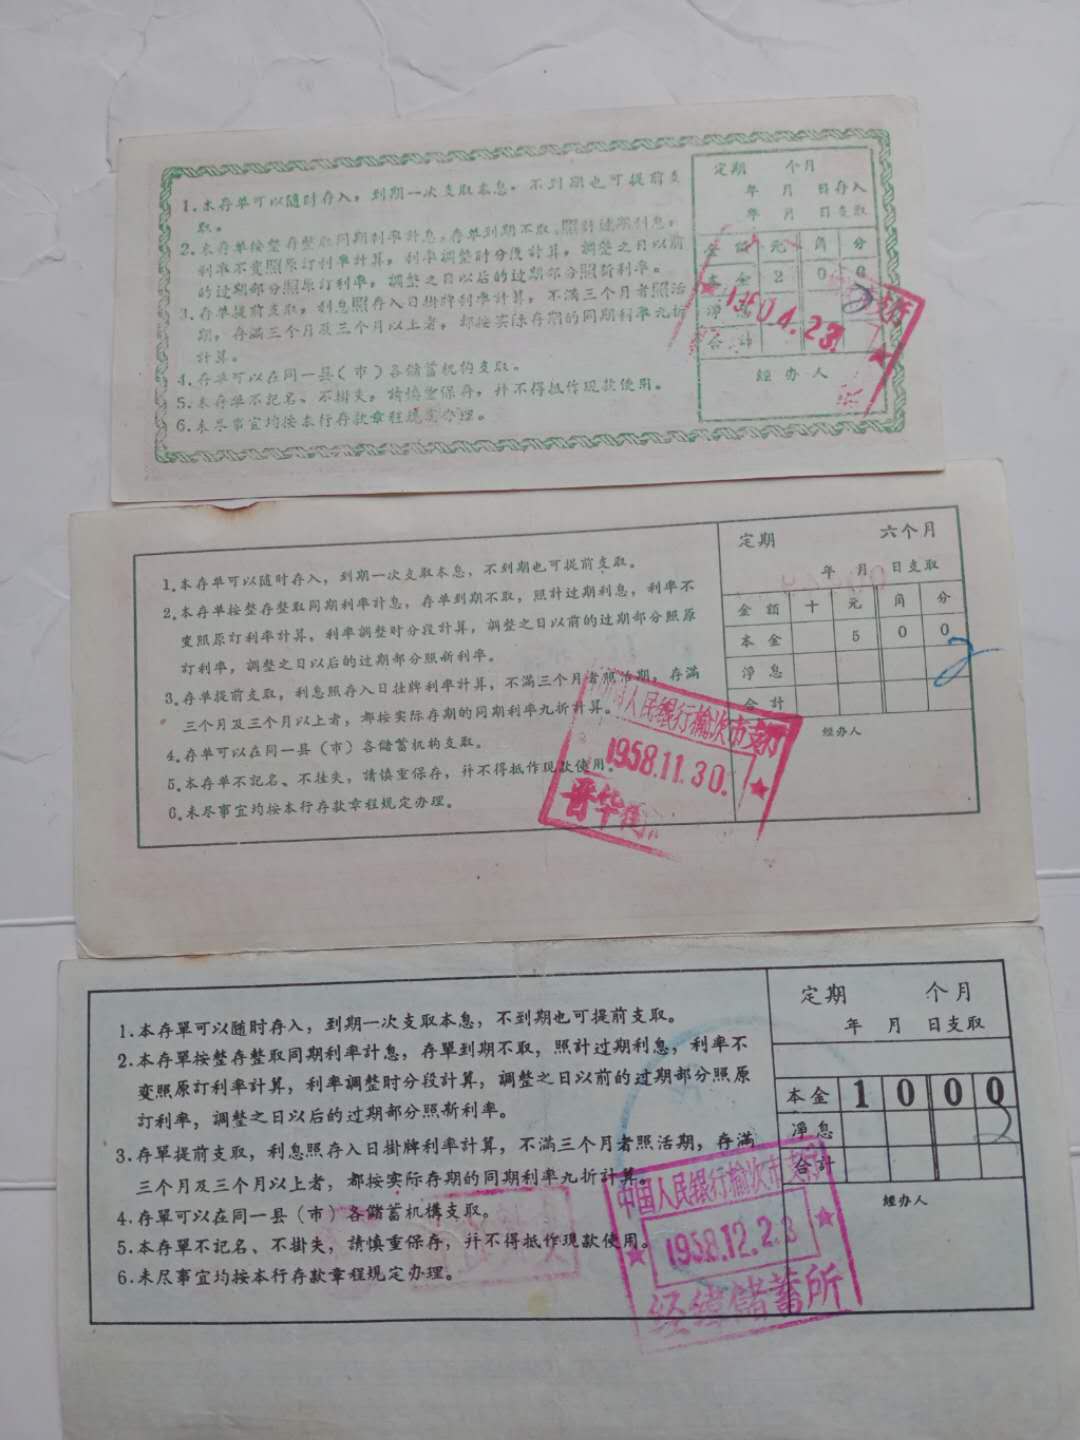 1.本存单可以随时存入，到期一次支取本息，不到期也可提前支
取。
2.本存单按整存整取同期利率計息，存单到期不取，照計过期利息，
利率不变照原訂利率計算，利率調整时分段計算，調整之日以前
的过期部分照原訂利率，調整之日以后的过期部分照新利率。
3.存单提前支取，利息照存入日掛牌利率計算，不滿三个月者照活
期，存滿三个月及三个月以上者，都按实际存期的同期利率九折
計算。
4.存单可以在同一县（市）各储蓄机构支取。
5.本存单不記名、不掛失，請慎重保存，幷不得抵作現款使用。
6.未尽事宜均按本行存款章程規定办理。
定期 个月
年 月 日存入
年 月 日支取
金額 元 角 分
本金 2 0 0
淨息
合計
经办人
04.23.
支行
1.本存单可以随时存入，到期一次支取本息，不到期也可提前支取。
2.本存单按整存整取同期利率計息，存单到期不取，照計过期利息，利率不
变照原訂利率計算，利率調整时分段計算，調整之日以前的过期部分照原
訂利率，調整之日以后的过期部分照新利率。
3.存单提前支取，利息照存入日挂牌利率計算，不滿三个月者照活期，存滿
三个月及三个月以上者，都按实际存期的同期利率九折計算。
4.存单可以在同一县（市）各储蓄机构支取。
5.本存单不記名、不挂失，請慎重保存，幷不得抵作現款使用。
6.未尽事宜均按本行存款章程規定办理。
定期 六个月
年 月 日支取
金額 十 元 角 分
本金 5 0 0
淨息
合計
經办人
人民銀行榆次市支行
1958.11.30.
晋华
1.本存單可以随时存入，到期一次支取本息，不到期也可提前支取。
2.本存單按整存整取同期利率計息，存單到期不取，照計过期利息，利率不
变照原訂利率計算，利率調整时分段計算，調整之日以前的过期部分照原
訂利率，調整之日以后的过期部分照新利率。
3.存單提前支取，利息照存入日掛牌利率計算，不滿三个月者照活期，存滿
三个月及三个月以上者，都按实际存期的同期利率九折計算。
4.存單可以在同一县（市）各儲蓄机構支取。
5.本存單不記名、不掛失，請慎重保存，幷不得抵作現款使用。
6.未尽事宜均按本行存款章程規定办理。
定期 个月
年 月 日支取
本金 1 0 0 0
淨息
合計
經办人
中国人民銀行榆次市支行
1958.12.23
经緯儲蓄所